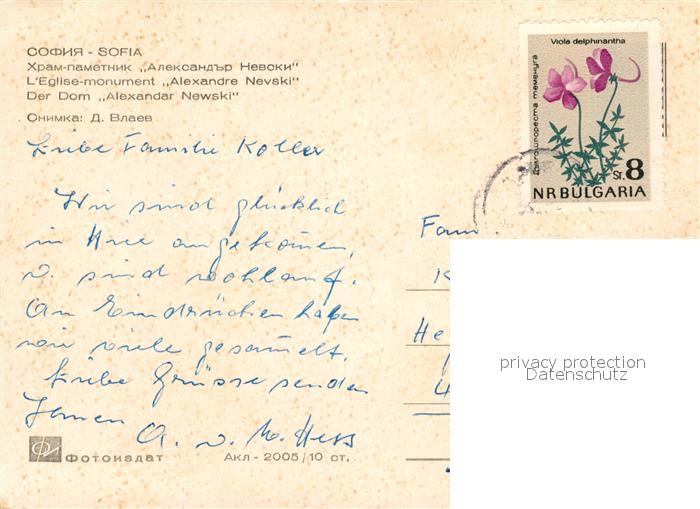 СОФИЯ - SOFIA
Храм-паметник „Александър Невски"
L'Eglise-monument „Alexandre Nevski"
Der Dom „Alexandar Newski"
Снимка: Д. Влаев
Liebe Familie Koller
Wir sind glücklich
in angekomen,
u. sind wohlauf.
An Eindrücken haben
wir viele gesamelt.
Liebe Grüsse senden
Ihnen
A. u. M. Hess
Фотоиздат Акл - 2005/10 ст.
Viola delphinantha
Дългошпореста теменуга
St. 8
NR BULGARIA
Fam.
K
He
4
privacy protection
Datenschutz